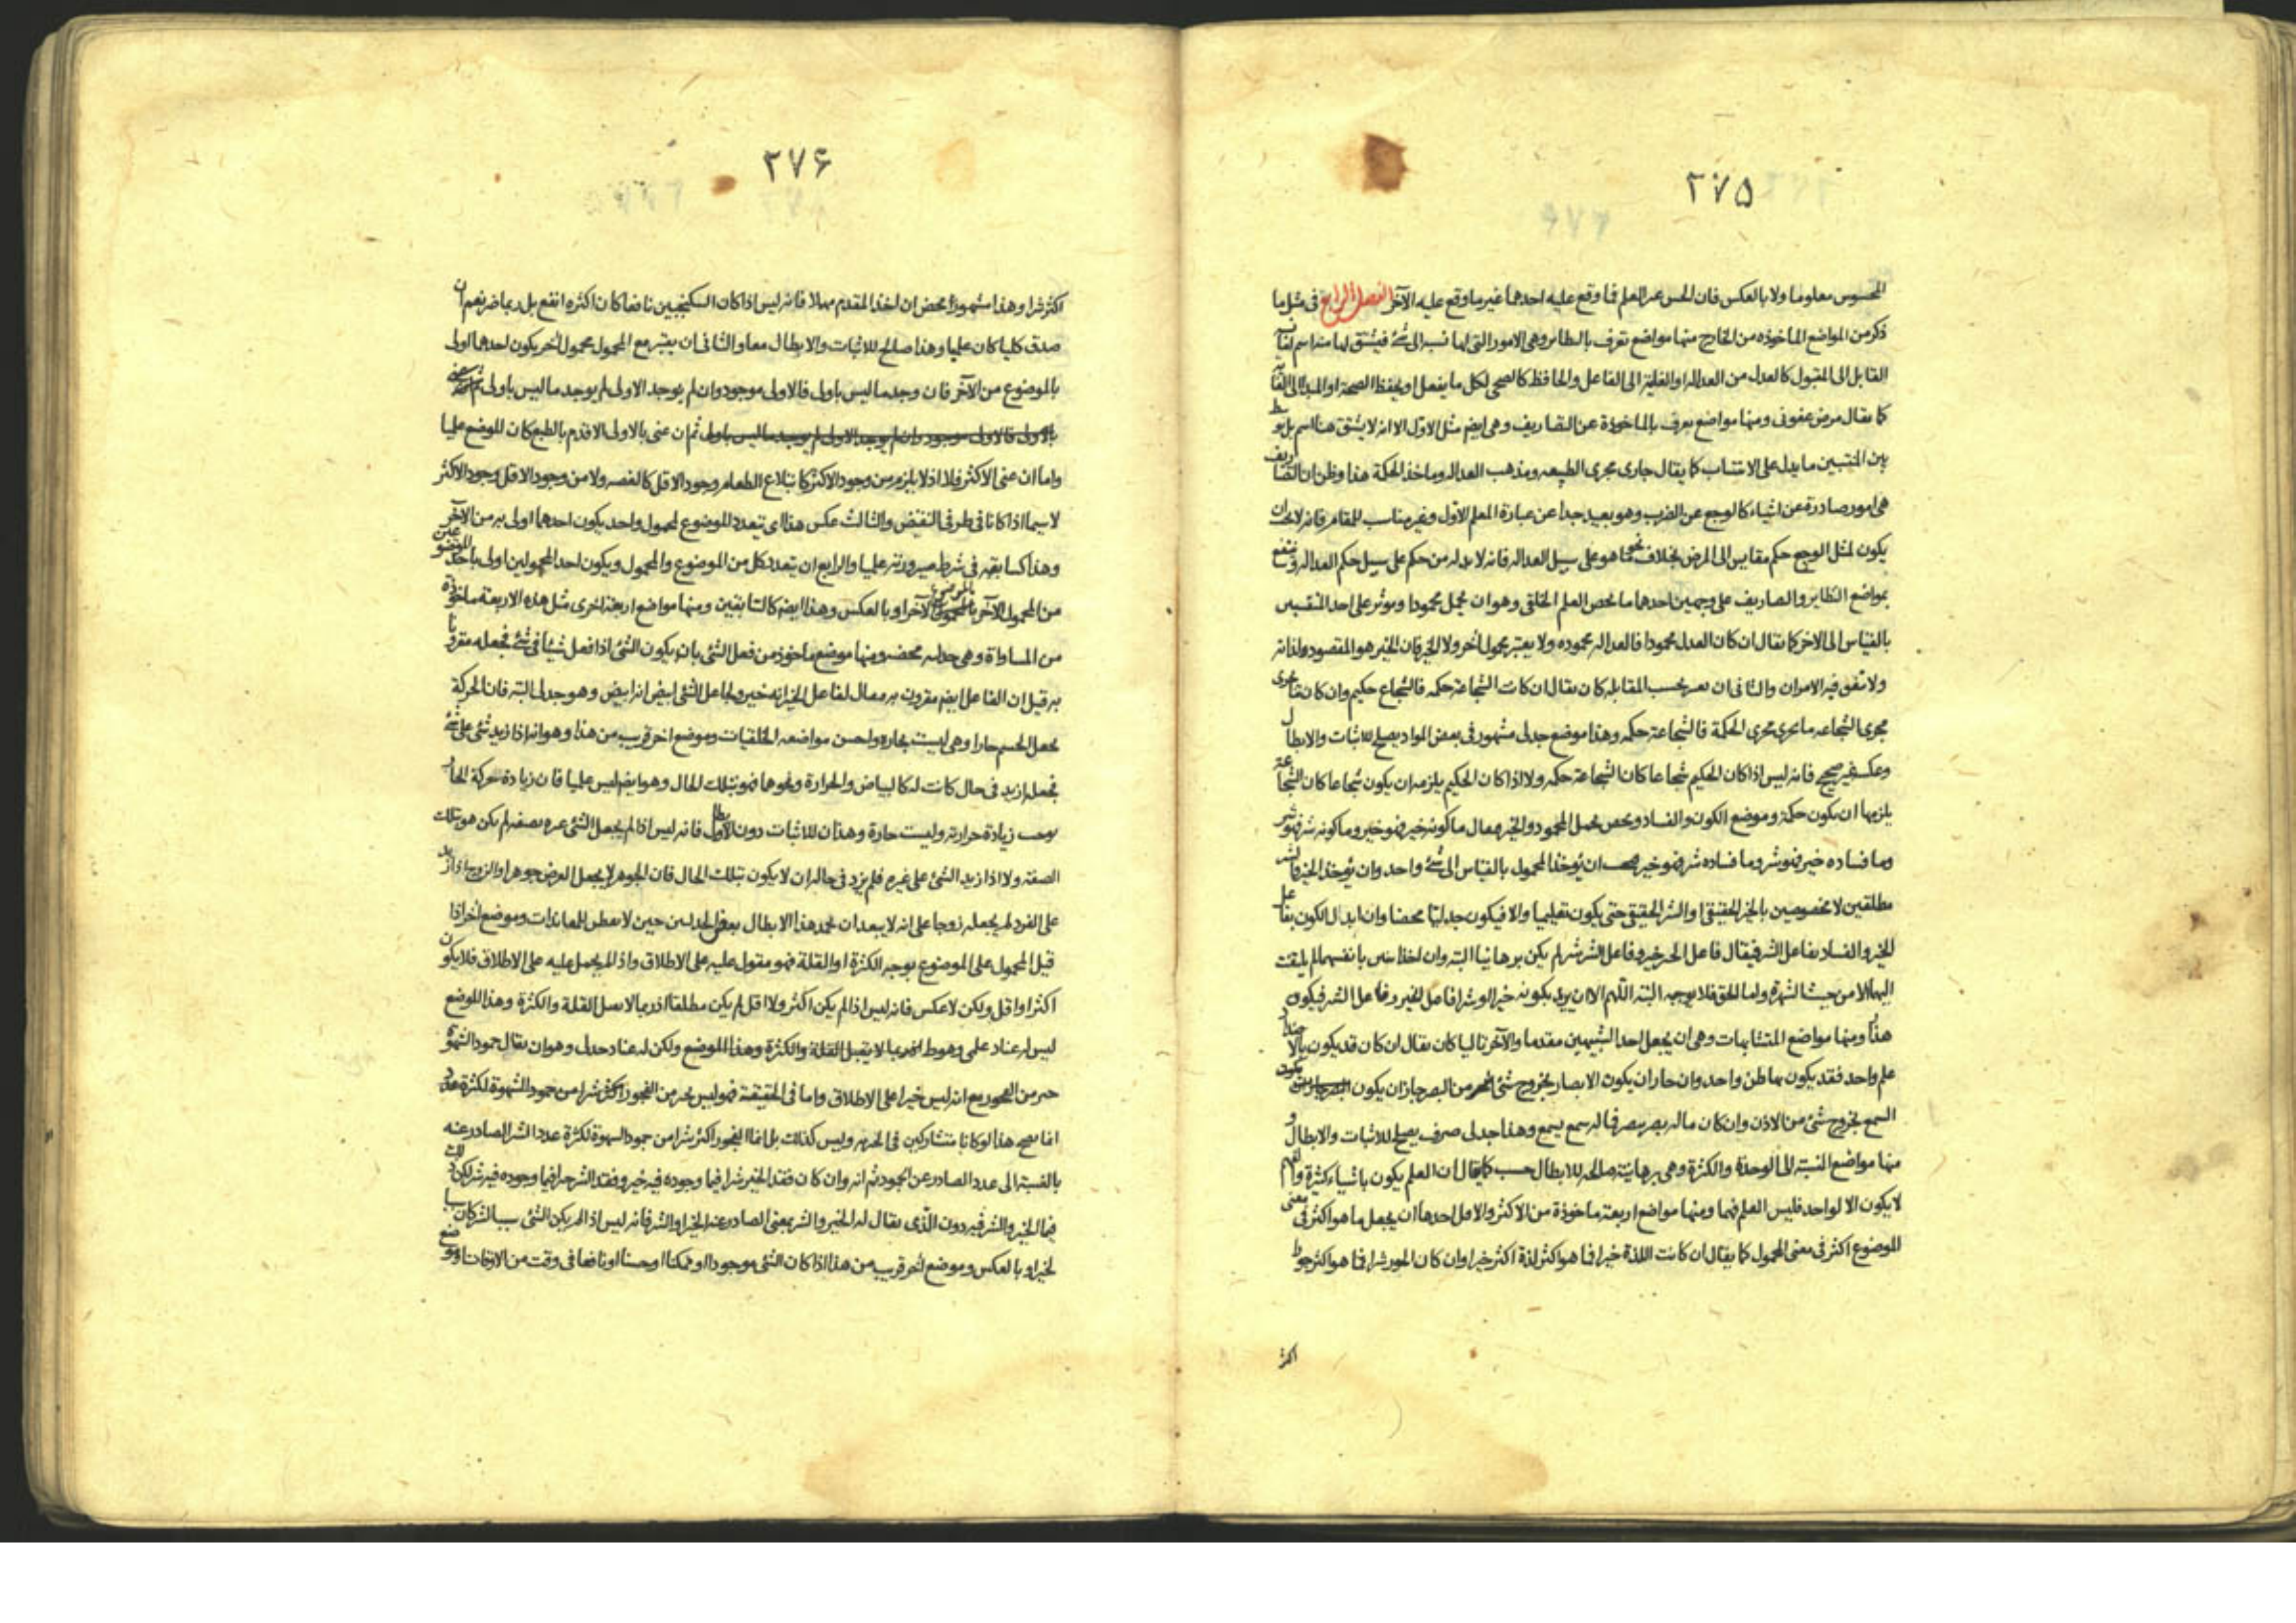 ٢٧٥
المحسوس معلوما ولا بالعكس فان الحس غير العلم فما وقع عليه احدهما غير ما وقع عليه الآخر الفصل الرابع فى مثل ما
ذكر من المواضع الماخوذه من الخارج منها مواضع تعرف بالنظاير وهى الامور التى لها نسبة الى شئ فيشتق لها منه اسم
القابل الى المقبول كالعدل من العدالة او الفاعلية الى الفاعل والحافظ كالصحى لكل ما يفعل او يحفظ الصحة او المبدأ الى
كما يقال مرض عفونى ومنها مواضع يعرف بالماخوذة عن التصاريف وهى ايضم مثل الاول الا انه لا يشتق هنا اسم بل
بين المنتسبين ما يدل على الانتساب كما يقال جارى مجرى الطبيعه ومذهب العداله وماخذ الحكمة هذا وظن ان التصاريف
هى امور صادرة عن اشياء كالوجع عن الضرب وهو بعيد جدا عن عبارة المعلم الاول وغير مناسب للمقام فانه لا يجب ان
يكون لمثل الوجع حكم مقايس الى المرض بخلاف نحو ما هو على سبيل العداله فانه لا بد له من حكم على سبيل حكم العداله
بمواضع النظاير والتصاريف على وجهين احدهما ما يخص العلم الخلقى وهو ان يجعل محمودا وموثر على احد
بالقياس الى الاخر كما يقال ان كان العدل محمودا فالعداله محموده ولا يعتبر محمول اخر ولا الخير فان الخير هو المقصود لذاته
ولا تفق فيه الامران والثانى ان يعتبر بحسب المقابله كان يقال ان كانت الشجاعة حكمه فالشجاع حكيم وان كان
مجرى الشجاعه ما يجرى مجرى الحكمة فالشجاعة حكمه وهذا موضع جدلى مشهور فى بعض المواد يصلح للاثبات والابطال
وعكسه غير صحيح فانه ليس اذا كان الحكيم شجاعا كان الشجاعة حكمه ولا اذا كان الحكيم يلزمه ان يكون شجاعا كان الشجاعة
يلزمها ان يكون حكمة وموضع الكون والفساد ويخص بحمل المحمود والخير فيقال ما كونه خير فهو خير وما كونه شر فهو شر
وما فساده خير فهو شر وما فساده شر فهو خير ويجب ان يوخذ المحمول بالقياس الى شئ واحد وان يوخذ الخير والشر
مطلقين لا مخصوصين بالخير الحقيقى او الشر الحقيقى حتى يكون تعليميا والا فيكون جدليا محضا وان ابدل الكون بفاعل
الخير والفساد بفاعل الشر فيقال فاعل الخير خير وفاعل الشر شر لم يكن برهانيا البتة وان اخذا بانفسهما لم يلتفت
اليها الا من حيث الشهرة واما الحق فلا يوجبه البتة اللهم الا ان يريد بكونه خيرا او شرا فاعل الخير وفاعل الشر فيكون
هذا ومنها مواضع المتشابهات وهى ان يجعل احد الشبيهين مقدما والآخر تاليا كان يقال ان كان قد يكون بالاضداد
علم واحد فقد يكون بها ظن واحد وان جاز ان يكون الابصار بخروج شئ من البصر جاز ان يكون
السمع بخروج شئ من الاذن وان كان ما له بصر يبصر فما له سمع يسمع وهذا جدلى صرف يصلح للاثبات والابطال و
منها مواضع النسبة الى الوحدة والكثرة وهى برهانية صالحه للابطال حسب كما يقال ان العلم يكون باشياء كثيرة والفهم
لا يكون الا لواحد فليس العلم فهما ومنها مواضع اربعة ماخوذة من الاكثر والاقل احدها ان يجعل ما هو اكثر فى معنى
الموضوع اكثر فى معنى المحمول كما يقال ان كانت اللذة خيرا فما هو اكثر لذة اكثر خيرا وان كان الجور شرا فما هو اكثر جورا
اكثر
٢٧۶
اكثر شرا وهذا مشهور محض ان اخذ المقدم مهملا فانه ليس اذا كان السكنجبين نافعا كان اكثره انفع بل ربما ضر نعم ان
صدق كليا كان علميا وهذا صالح للاثبات والابطال معا والثانى ان يعتبر مع المحمول محمول اخر يكون احدهما اولى
بالموضوع من الآخر فان وجد ما ليس باولى فالاولى موجود وان لم يوجد الاولى لم يوجد ما ليس باولى
بالاولى فالاولى موجود وان لم يوجد الاولى لم يوجد ما ليس باولى ثم ان عنى بالاولى الاقدم بالطبع كان الموضع علميا
واما ان عنى الاكثر فلا اذ لا يلزم من وجود الاكثر كابتلاع الطعام وجود الاقل كالغصه ولا من وجود الاقل وجود الاكثر
لا سيما اذا كانا فى طرفى النقيض والثالث عكس هذا اى تعدد الموضوع لمحمول واحد يكون احدهما اولى به من الآخر
وهذا كسابقه فى شرط صيرورته علميا والرابع ان يتعدد كل من الموضوع والمحمول ويكون احد المحمولين اولى باحد الموضوعين
من المحمول الآخر بالموضوع الآخر او بالعكس وهذا ايضم كالسابقين ومنها مواضع اربعة اخرى مثل هذه الاربعة ماخوذة
من المساواة وهى جدليه محضه ومنها موضع ماخوذ من فعل الشئ بان يكون الشئ اذا فعل شيئا فى شئ فجعله مقرونا
به قيل ان الفاعل ايضم مقرون به فيقال لفاعل الخير انه خير ولجاعل الشئ ابيض انه ابيض وهو جدلى البتة فان الحركة
يجعل الجسم حارا وهى ليست بحاره واحسن مواضعه الخلقيات وموضع اخر قريب من هذا وهو انه اذا زيد شئ على شئ
فجعله ازيد فى حال كانت له كالبياض والحرارة ونحوها فهو بتلك الحال وهو ايضم ليس علميا فان زيادة حركة الحار
يوجب زيادة حرارته وليست حارة وهذان للاثبات دون الابطال فانه ليس اذا لم يجعل الشئ غيره بصفة لم يكن هو بتلك
الصفة ولا اذا زيد الشئ على غيره فلم يزد فى حاله ان لا يكون بتلك الحال فان الجوهر لا يجعل العرض جوهرا والزوج اذا زيد
على الفرد لم يجعله زوجا على انه لا يبعد ان يحمد هذا الابطال بعض الجدليين حين لا يفطن للمعاندات وموضع اخر اذا
قيل المحمول على الموضوع بوجه الكثرة او القلة فهو مقول عليه على الاطلاق واذا لم يحمل عليه على الاطلاق فلا يكون
اكثر او اقل ولكن لا عكس فانه ليس اذا لم يكن اكثر ولا اقل لم يكن مطلقا اذ ربما لا يقبل القلة والكثرة وهذا الموضع
ليس له عناد علمى ولكن له عناد جدلى وهو ان يقال خمود الشهوة
خير من الفجور مع انه ليس خيرا على الاطلاق واما فى الحقيقة فهو ليس خير من الفجور اكثر شرا من خمود الشهوة لكثرة
انما يصح هذا لو كانا متشاركين فى الخيريه وليس كذلك بل انما الفجور اكثر شرا من خمود الشهوة لكثرة عدد الشر الصادر عنه
بالنسبة الى عدد الصادر عن الخمود ثم انه وان كان فقد الخير شرا فيما وجوده فيه خير وفقد الشر خيرا فيما وجوده فيه شر لكن
فيما الخير والشر فيه دون الذى يقال له الخير والشر بمعنى الصادر عنه الخير او الشر فانه ليس اذا لم يكن الشئ سببا لشر كان سببا
لخير او بالعكس وموضع اخر قريب من هذا اذا كان الشئ موجودا او ممكنا او حسنا او نافعا فى وقت من الاوقات او موضع